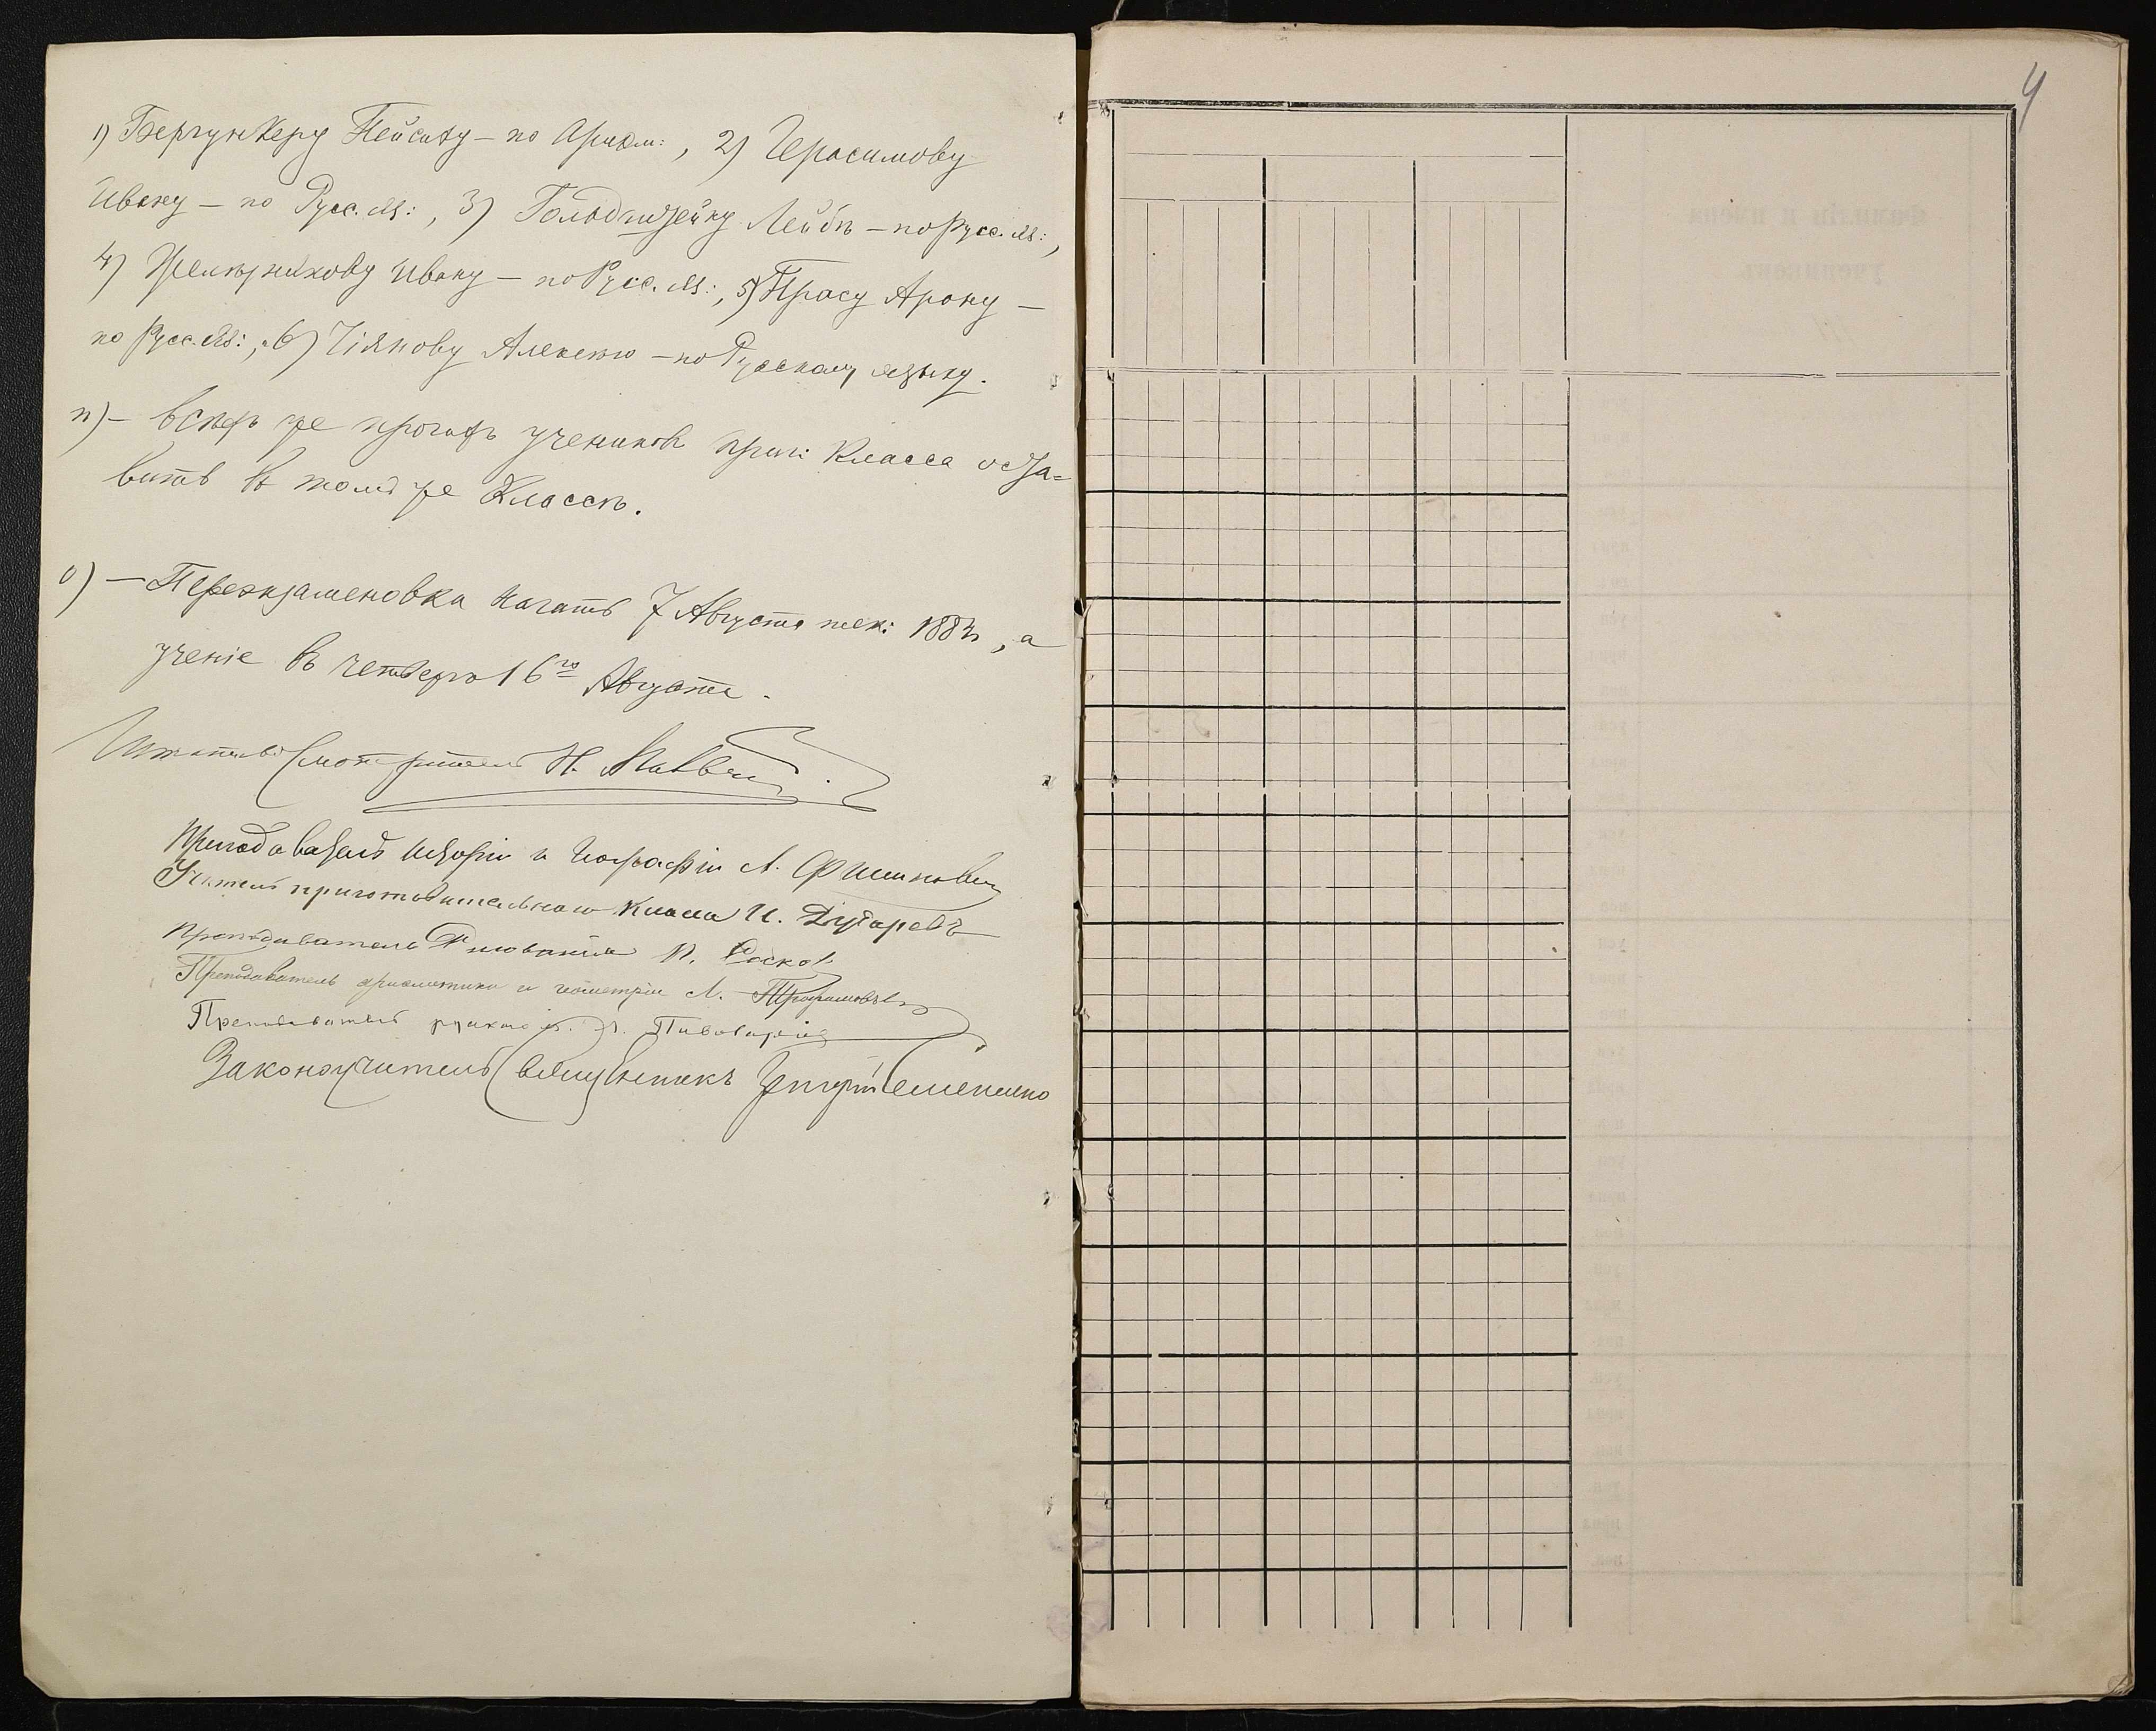 1) Бергункеру Пейсаху – по Ариѳм:, 2) Герасимову
Ивану – по Русс. яз:, 3) Гольдштейну Лейбѣ – по Русс. яз:,
4) Желѣзникову Ивану – по Русс. яз:, 5) Прасу Арону –
по Русс. яз:, 6) Чіянову Алексѣю – по Русскому языку.
н) – всѣхъ же прочихъ учениковъ приг: класса оста=
вить въ томъ же классѣ.
о) – Переэкзаменовка начать 7 Августа тек: 1883 г, а
ученіе въ четвергъ 16го Августа.
Штатный Смотритель Н.
Преподаватель исторіи и географіи А.
Учитель приготовительнаго класса И. Дударевъ
Преподаватель Рисованія
Преподаватель ариѳметики и геометріи Л.
Преподаватель русскаго яз.
Законоучитель Священникъ
4
Фамиліи и имена
учениковъ